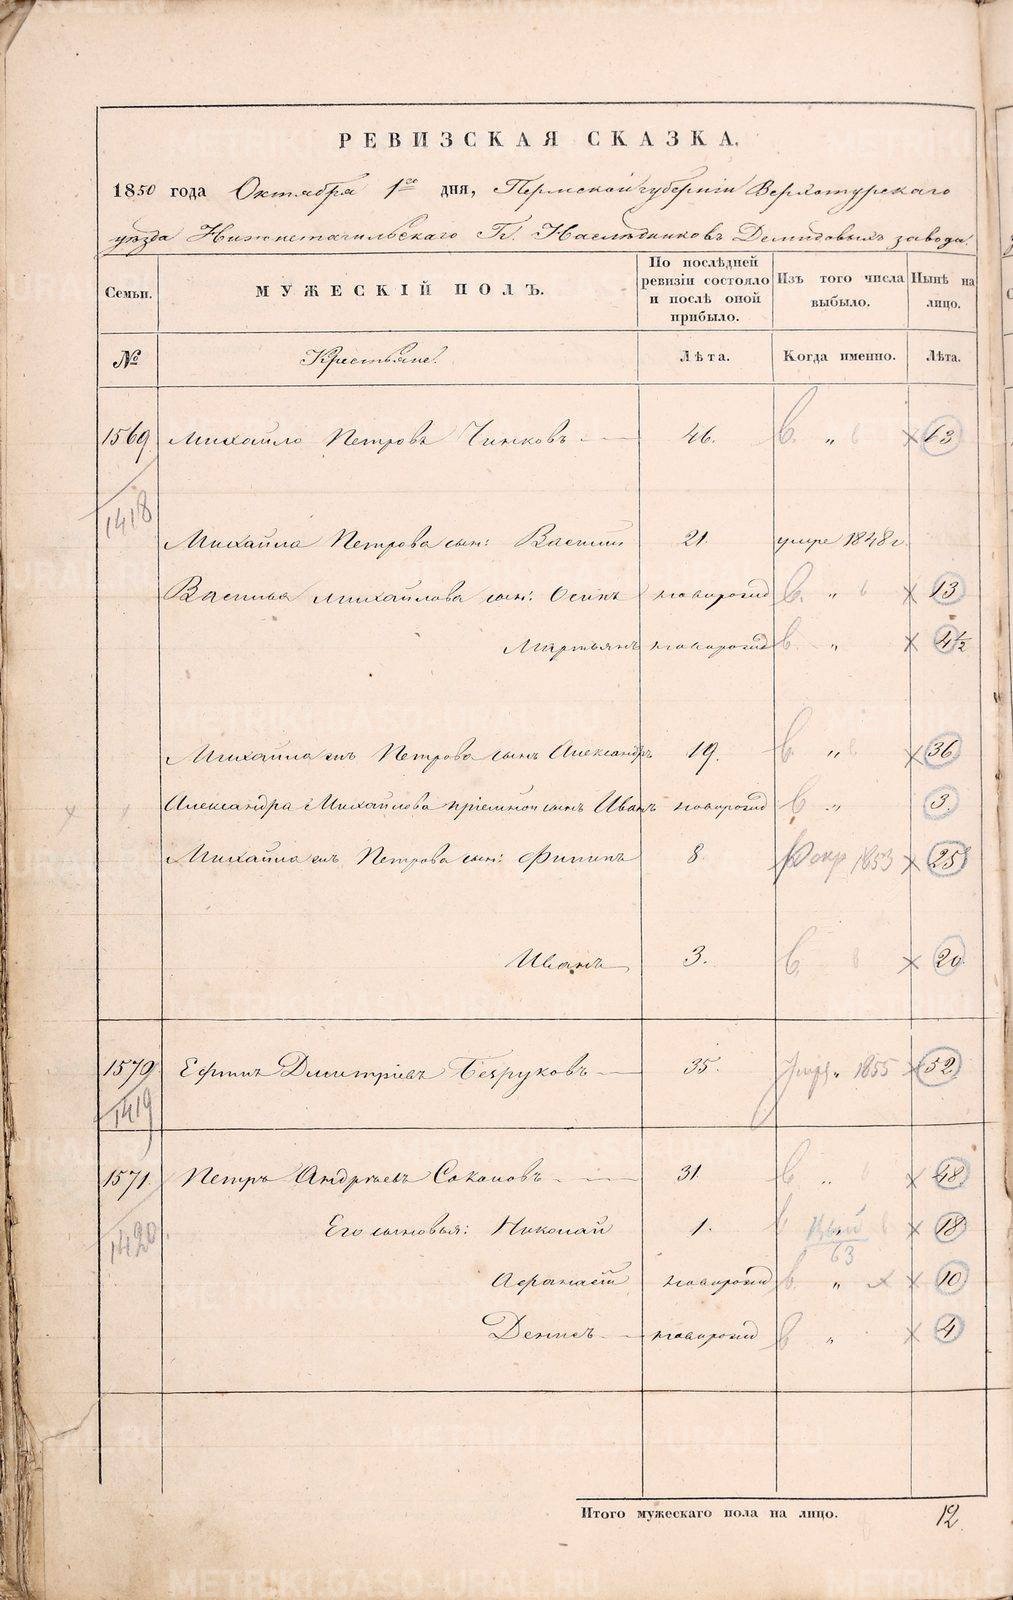 РЕВИЗСКАЯ СКАЗКА.
1850 года Октября 1го дня, Пермской губерніи Верхотурскаго
уѣзда Нижнетагильскаго Гг. Наслѣдниковъ Демидовыхъ завода.
Семьи. МУЖЕСКІЙ ПОЛЪ. По послѣдней ревизіи состояло и послѣ оной прибыло. Изъ того числа выбыло. Нынѣ на лицо.
№ Крестьяне. Лѣта. Когда именно. Лѣта.
1569 Михайло Петровъ Чинковъ 46. „ 63
1418
Михайла Петрова сын: Василій 21. умре 1848 г.
Василья Михайлова сын: Осипъ новорожд „ 13
Мартьянъ новорожд „ 4½
Михайла Петрова сынъ Александръ 19. „ 36
Александра Михайлова пріемной сынъ Иванъ новорожд „ 3.
Михайла Петрова сын: Филипъ 8. 1853 25
Иванъ 3. 20
1570 Ефимъ Дмитріевъ Безруковъ 35. Умре „ 1855 52
1419
1571. Петръ Андреевъ Соколовъ 31. „ 48
1420
Его сыновья: Николай 1. 18
63
Афанасій новорожд „ 10
Денисъ новорожд „ 4
Итого мужескаго пола на лицо. 12
METRIKI.GASO-URAL.RU